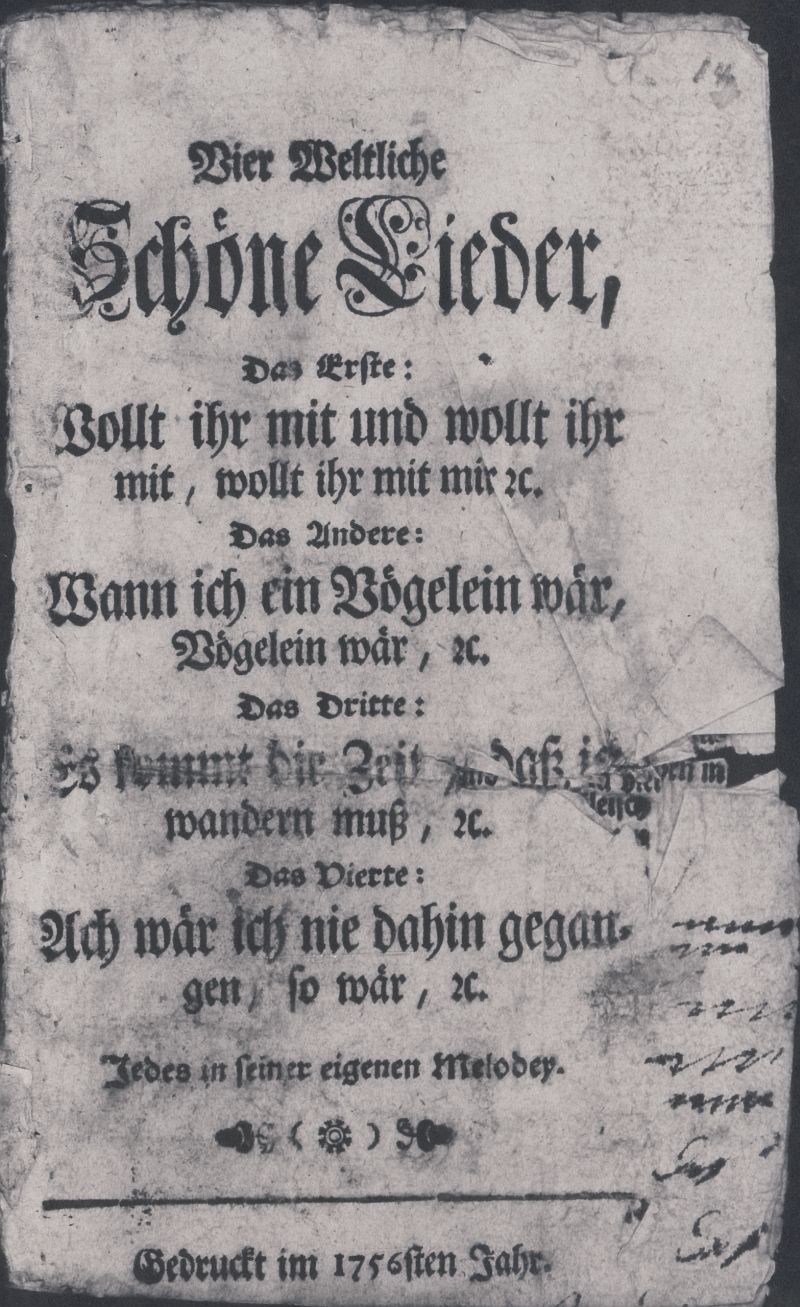 Vier Weltliche
Schöne Lieder,
Das Erste:
Wollt ihr mit und wollt ihr
mit, wollt ihr mit mir ꝛc.
Das Andere:
Wann ich ein Vögelein wär,
Vögelein wär, ꝛc.
Das Dritte:
Es kommt die Zeit, und daß ich
wandern muß, ꝛc.
Das Vierte:
Ach wär ich nie dahin gegan-
gen, so wär, ꝛc.
Jedes in seiner eigenen Melodey.
Gedruckt im 1756sten Jahr.